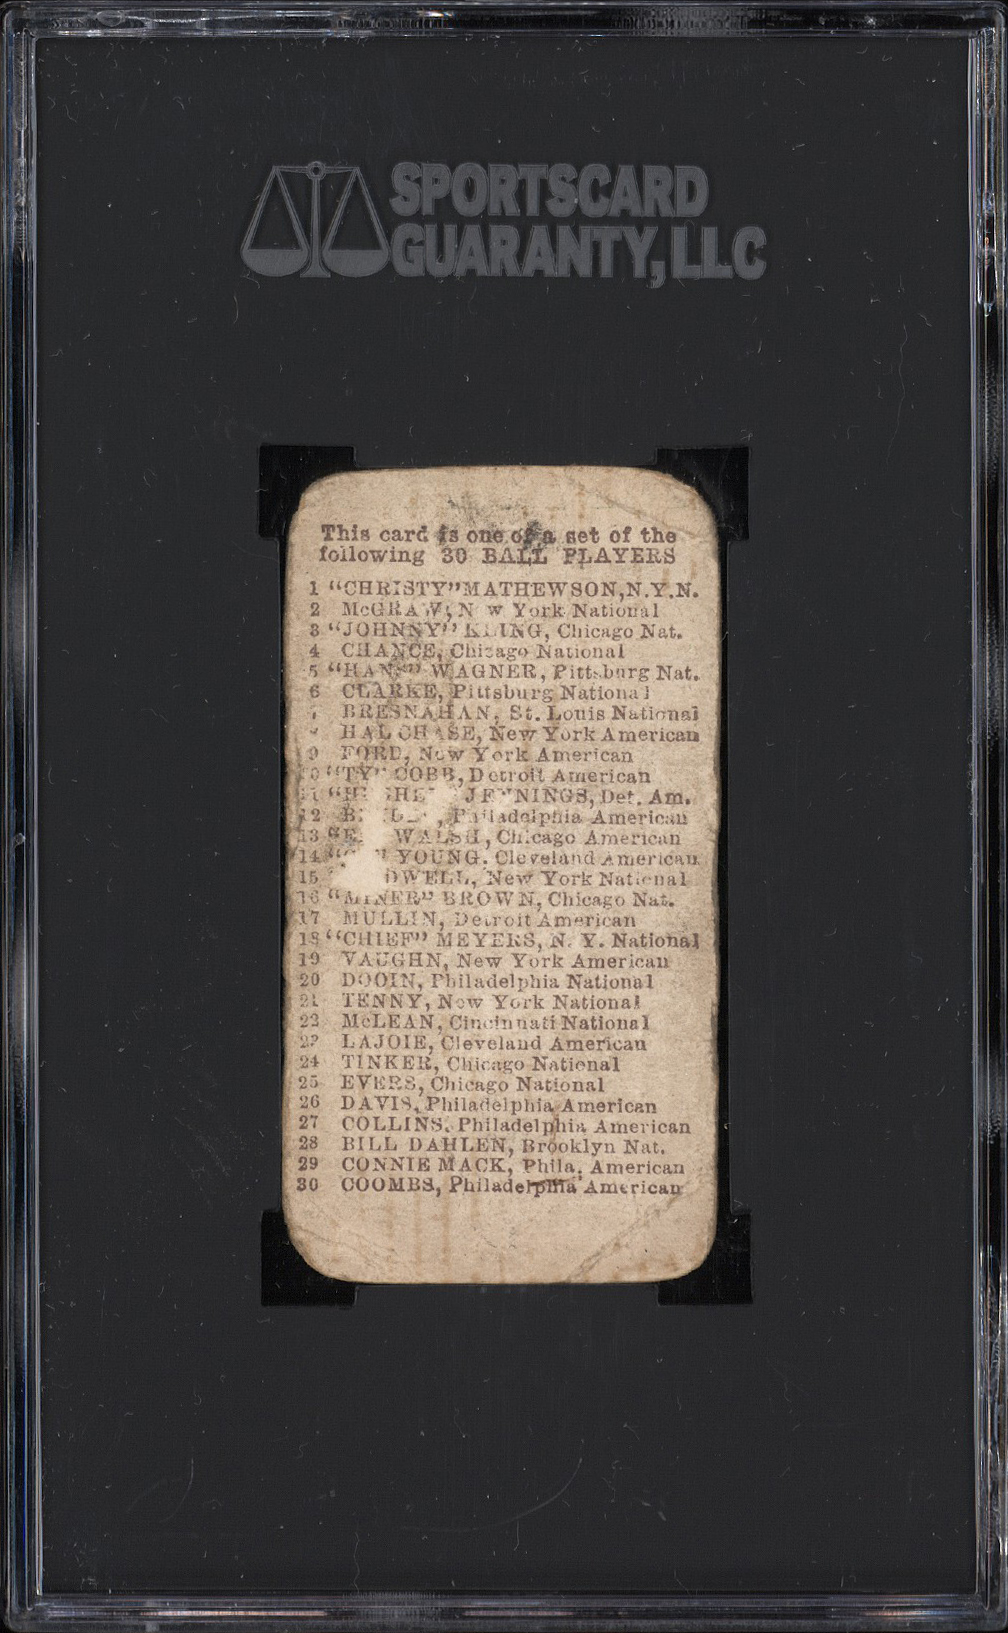 SPORTSCARD
GUARANTY, LLC
This card is one of a set of the
following 30 BALL PLAYERS
1 "CHRISTY" MATHEWSON, N.Y.N.
2 McGRAW, N w York National
3 "JOHNNY" KLING, Chicago Nat.
4 CHANCE, Chicago National
5 "HANS" WAGNER, Pittsburg Nat.
6 CLARKE, Pittsburg National
7 BRESNAHAN, St. Louis National
HAL CHASE, New York American
9 FORD, New York American
10 "TY" COBB, Detroit American
11 JENNINGS, Det. Am.
12 Philadelphia American
13 WALSH, Chicago American
14 YOUNG. Cleveland American
15 DWELL, New York National
16 "MINER" BROWN, Chicago Nat.
17 MULLIN, Detroit American
18 "CHIEF" MEYERS, N. Y. National
19 VAUGHN, New York American
20 DOOIN, Philadelphia National
21 TENNY, New York National
22 McLEAN, Cincinnati National
23 LAJOIE, Cleveland American
24 TINKER, Chicago National
25 EVERS, Chicago National
26 DAVIS, Philadelphia American
27 COLLINS, Philadelphia American
28 BILL DAHLEN, Brooklyn Nat.
29 CONNIE MACK, Phila. American
30 COOMBS, Philadelphia American